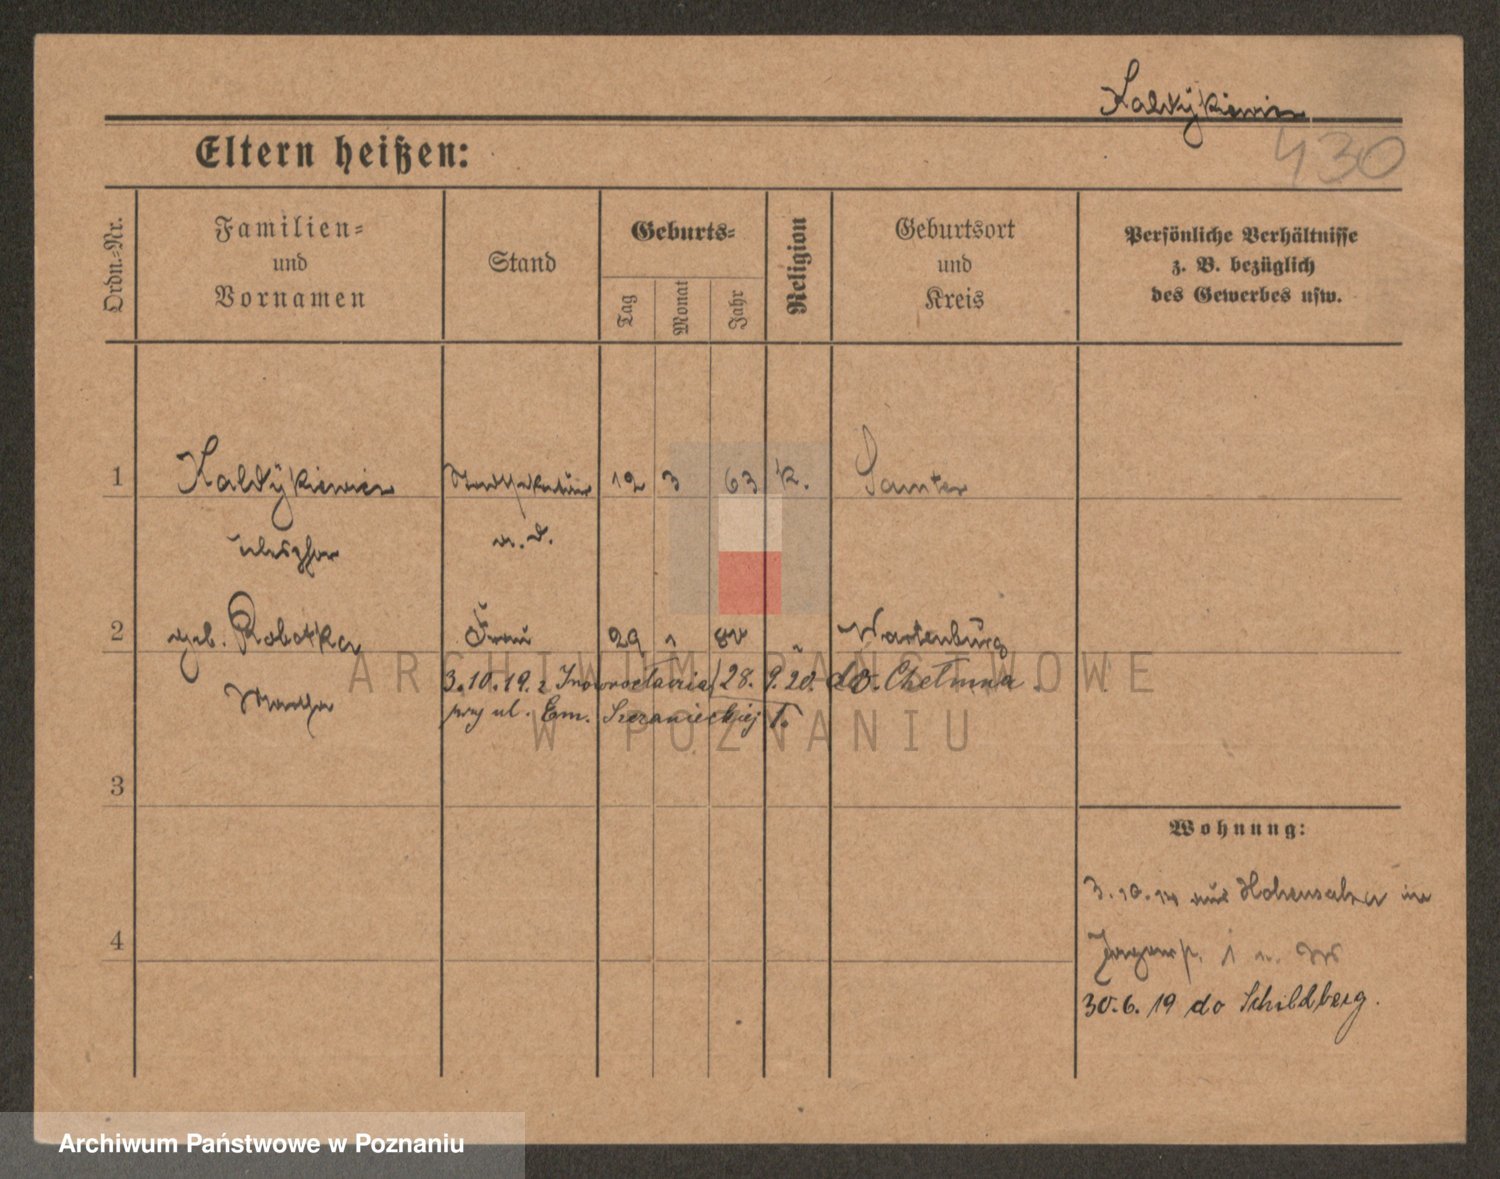 Kaldÿkiewicz
430
Eltern heißen:
Ordn.-Nr.
Familien-
und
Vornamen
Stand
Geburts-
Tag
Monat
Jahr
Religion
Geburtsort
und
Kreis
Persönliche Verhältnisse
z. B. bezüglich
des Gewerbes usw.
1 Kaldÿkiewicz 12 3 63 k. Samter
a. D.
2 geb. Robotka Frau 29 1 Wartenburg
3.10.19. z Inowrocławia 28. 9. 20. do Chełmna.
przy ul. Em. Sczanieckiej 1.
Martha
3
4
Wohnung:
3.10.14 aus Hohensalza in
30.6.19 do Schildberg.
ARCHIWUM PAŃSTWOWE
W POZNANIU
Archiwum Państwowe w Poznaniu